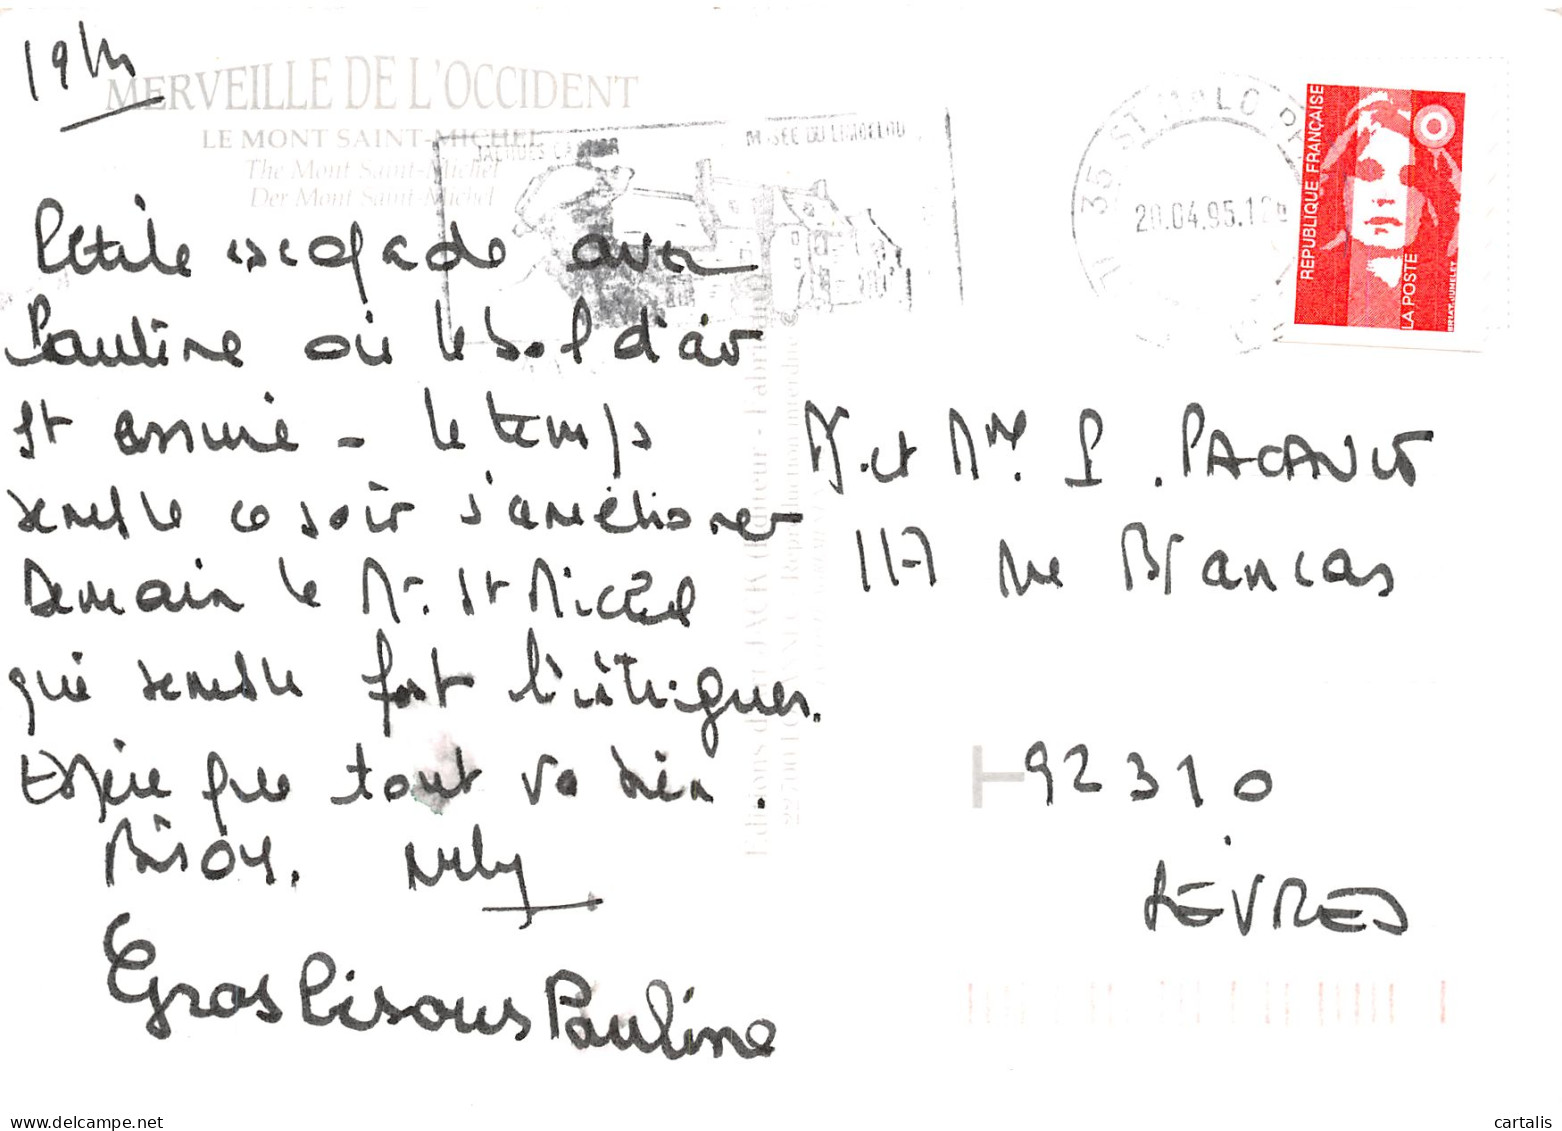 19h
MERVEILLE DE L'OCCIDENT
LE MONT SAINT-MICHEL
The Mont Saint-Michel
Der Mont Saint-Michel
JACQUES CARTIER
MUSÉE DU LIMOELOU
35 ST MALO
20.04.95
RÉPUBLIQUE FRANÇAISE
LA POSTE
BRIAT.JUMELET
Petite escapade avec
Pauline où le bol d'air
St assuré - le temps
semble ce soir s'améliorer
Demain le Mt. St Michel
qui semble fort l'intriguer.
Espère que tout va bien.
Bisoux. Nelly
Gros bisous Pauline
Editions d'Art JACK (Editeur - Fabricant)
Reproduction interdite
M. et Mme. P. PACAULT
117 rue Brancas
92310
SÈVRES
cartalis